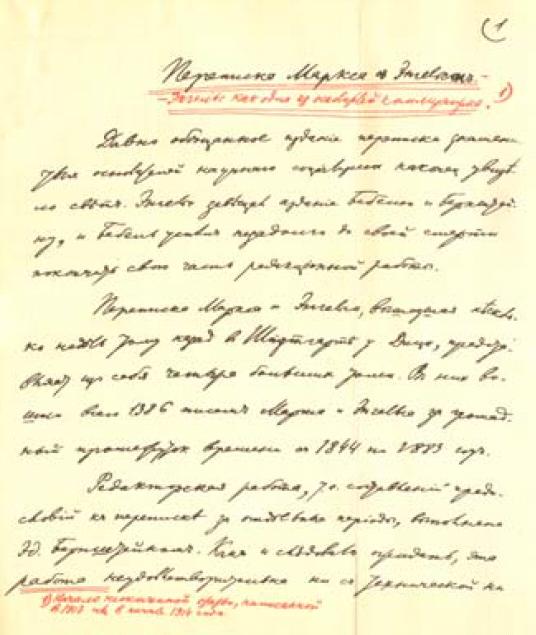 1
Переписка Маркса с Энгельсом.
Энгельс как один из основателей коммунизма. 1)
Давно обещанное издание переписки знамени-
тых основателей научного социализма наконец увидѣ-
ло свѣтъ. Энгельс завещал издание Бебелю и Бернштей-
ну, и Бебель успел незадолго до своей смерти
покончить свою часть редакционной работы.
Переписка Маркса и Энгельса, вышедшая нѣсколь-
ко недѣль тому назад в Штутгарте у Дица, представ-
ляет из себя четыре больших тома. В них во-
шло всего 1386 писем Маркса и Энгельса за громад-
ный промежуток времени с 1844 по 1883 год.
Редакторская работа, т.е. составление преди-
словий къ перепискѣ за отдѣльные періоды, выполнена
Эд. Бернштейном. Как и слѣдовало ожидать, эта
работа неудовлетворительна ни с технической ни
1) Начало неоконченной статьи, написанной
в 1913 или в начале 1914 года